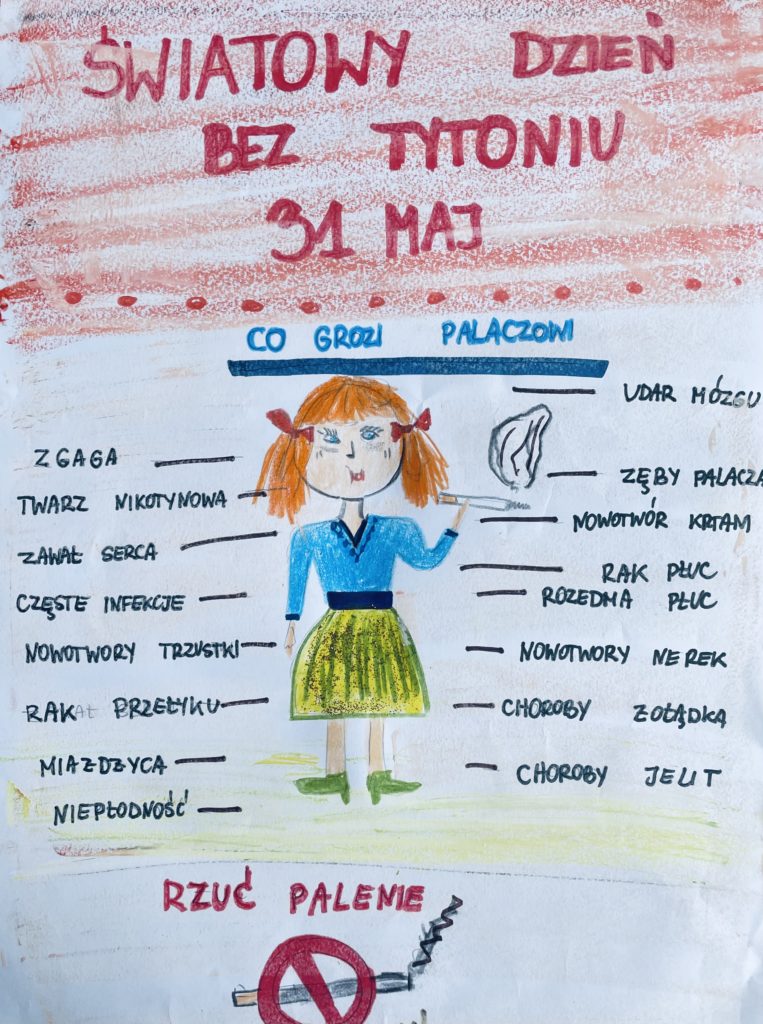 ŚWIATOWY DZIEŃ
BEZ TYTONIU
31 MAJ
CO GROZI PALACZOWI
ZGAGA
TWARZ NIKOTYNOWA
ZAWAŁ SERCA
CZĘSTE INFEKCJE
NOWOTWORY TRZUSTKI
RAK PRZEŁYKU
MIAŻDŻYCA
NIEPŁODNOŚĆ
UDAR MÓZGU
ZĘBY PALACZA
NOWOTWÓR KRTAM
RAK PŁUC
ROZEDMA PŁUC
NOWOTWORY NEREK
CHOROBY ŻOŁĄDKA
CHOROBY JELIT
RZUĆ PALENIE